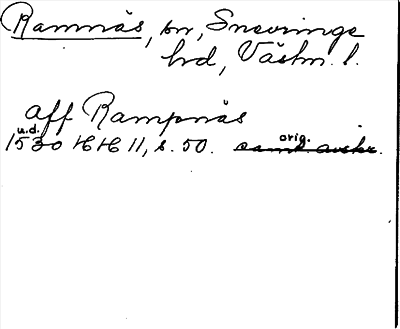 Ramnäs, sn, Snevringe
hd, Västm. l.
aff Rampnäs
u.d. orig.
1530 HH 11, s. 50. samt avskr.